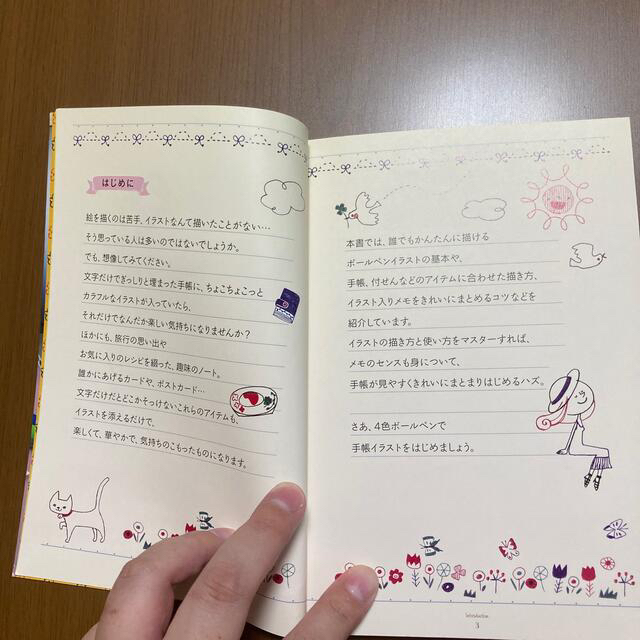 はじめに
絵を描くのは苦手、イラストなんて描いたことがない…
そう思っている人は多いのではないでしょうか。
でも、想像してみてください。
文字だけでぎっしりと埋まった手帳に、ちょこちょこっと
カラフルなイラストが入っていたら、
それだけでなんだか楽しい気持ちになりませんか?
ほかにも、旅行の思い出や
お気に入りのレシピを綴った、趣味のノート。
誰かにあげるカードや、ポストカード…
文字だけだとどこかそっけないこれらのアイテムも、
イラストを添えるだけで、
楽しくて、華やかで、気持ちのこもったものになります。
本書では、誰でもかんたんに描ける
ボールペンイラストの基本や、
手帳、付せんなどのアイテムに合わせた描き方、
イラスト入りメモをきれいにまとめるコツなどを
紹介しています。
イラストの描き方と使い方をマスターすれば、
メモのセンスも身について、
手帳が見やすくきれいにまとまりはじめるハズ。
さあ、4色ボールペンで
手帳イラストをはじめましょう。
Introduction
3